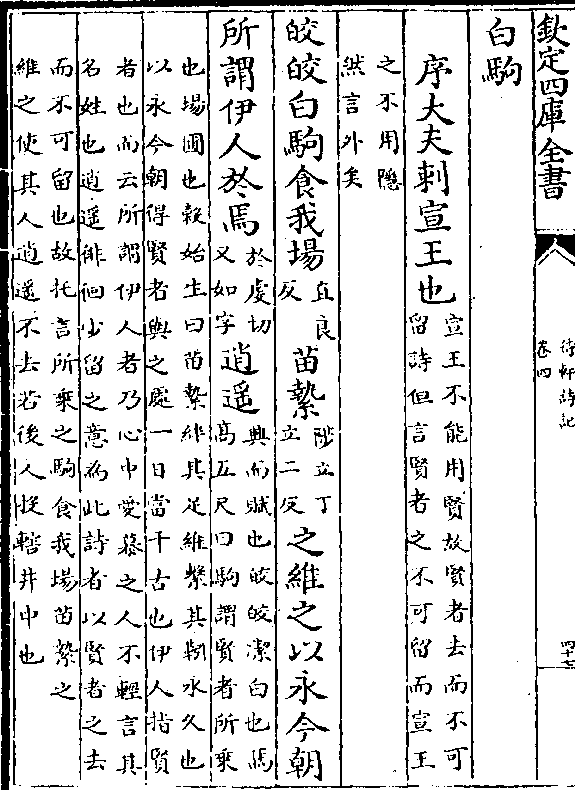 欽定四庫全書
待軒詩記
卷四
白駒
序大夫刺宣王也宣王不能用賢故賢者去而不可
留詩但言賢者之不可留而宣王
之不用隱
然言外矣
皎皎白駒食我場直良反苗縶陟立丁立二反之維之以永今朝
所謂伊人於焉於虔切又如字逍遥興而賦也皎皎潔白也馬
高五尺曰駒謂賢者所乘
也場圃也穀始生曰苗縶絆其足維繫其靷永久也
以永今朝得賢者與之處一日當千古也伊人指賢
者也而云所謂伊人者乃心中愛慕之人不輕言其
名姓也逍遥徘徊少留之意為此詩者以賢者之去
而不可留也故托言所乘之駒食我場苗縶之
維之使其人逍遥不去若後人投轄井中也